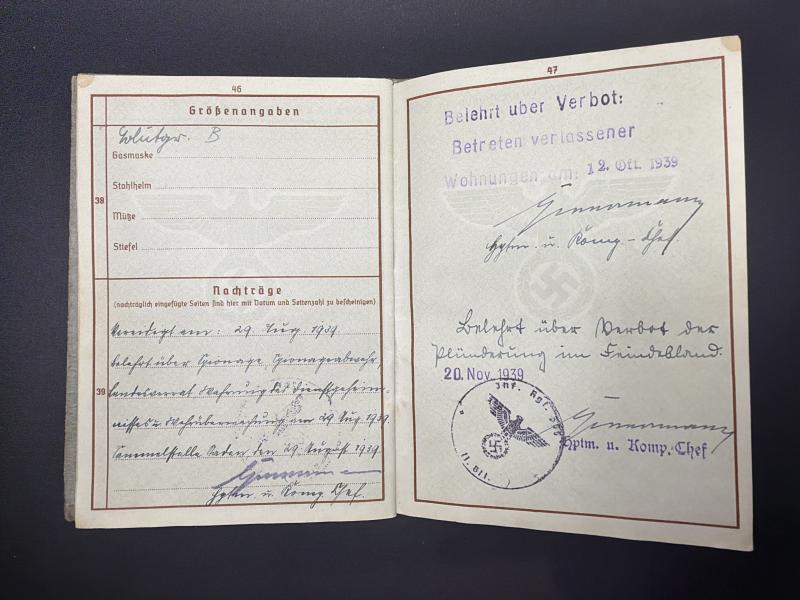 46
Größenangaben
Blutgr. B
Gasmaske
38
Stahlhelm
Mütze
Stiefel
Nachträge
(nachträglich eingefügte Seiten sind hier mit Datum und Seitenzahl zu bescheinigen)
Vereidigt am: 29. Aug. 1939.
Belehrt über Spionage, Spionageabwehr,
39
Landesverrat, Wahrung des Dienstgeheim-
nisses u. am 29. Aug. 1939.
Sammelstelle den 29. August 1939.
Hptm. u. Komp. Chef.
47
Belehrt über Verbot:
Betreten verlassener
Wohnungen am: 12. Okt. 1939
Hptm. u. Komp.-Chef.
Belehrt über Verbot der
Plünderung im Feindesland.
20. Nov. 1939
Inf. Rgt.
Hptm. u. Komp. Chef